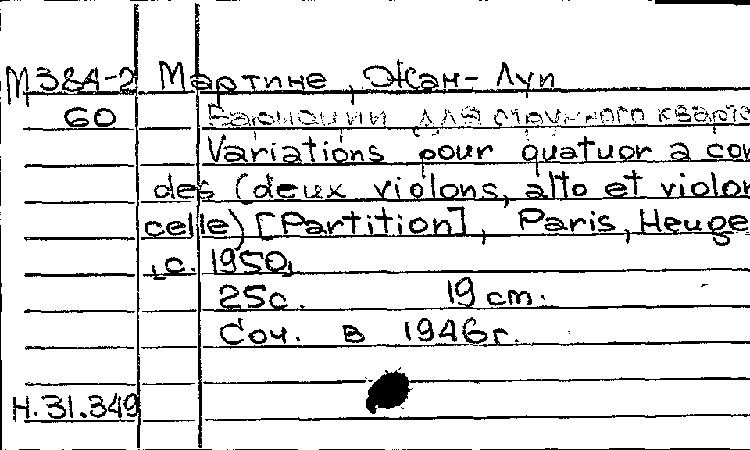 М384-2 Мартине, Жан-Луи
60 Вариации для струнного кварте
Variations pour quatuor a cor
des (deux violons, alto et violon
celle) [Partition], Paris, Heuge
,c. 1950,
25с. 19 cm.
Соч. в 1946г.
Н.31.349